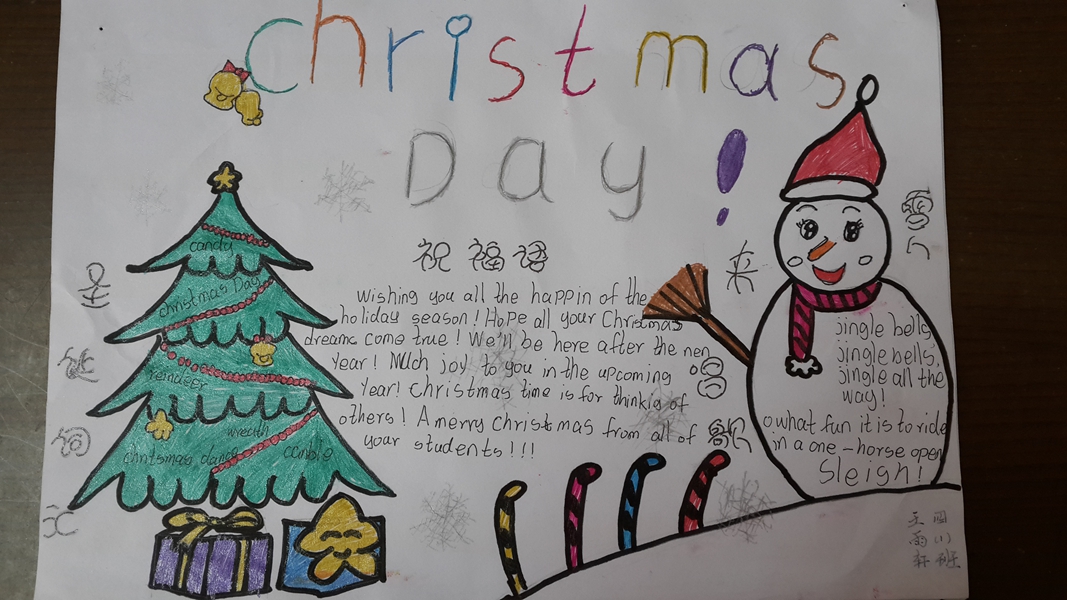 Christmas
Day!
祝福语
Wishing you all the happin of the
holiday season! HoPe all your Christmas
dreams come true! We'll be here after the nen
Year! Much joy to you in the upcoming
Year! Christmas time is for thinkig of
others! A merry christmas from all of
your students!!!
candy
christmas Day
reindeer
wreath
christmas dance
圣
诞
词
汇
来
唱
jingle bells,
jingle bells,
jingle all the
way!
o what fun it is to ride
in a one-horse open
sleigh!
四
班
王
雨
轩